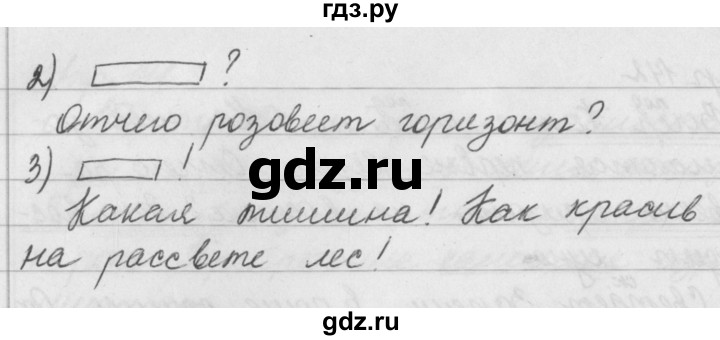 гдз.ру
2) ?
Отчего розовеет горизонт?
3) !
gdz.ru
Какая тишина! Как красив
на рассвете лес!
gdz.ru